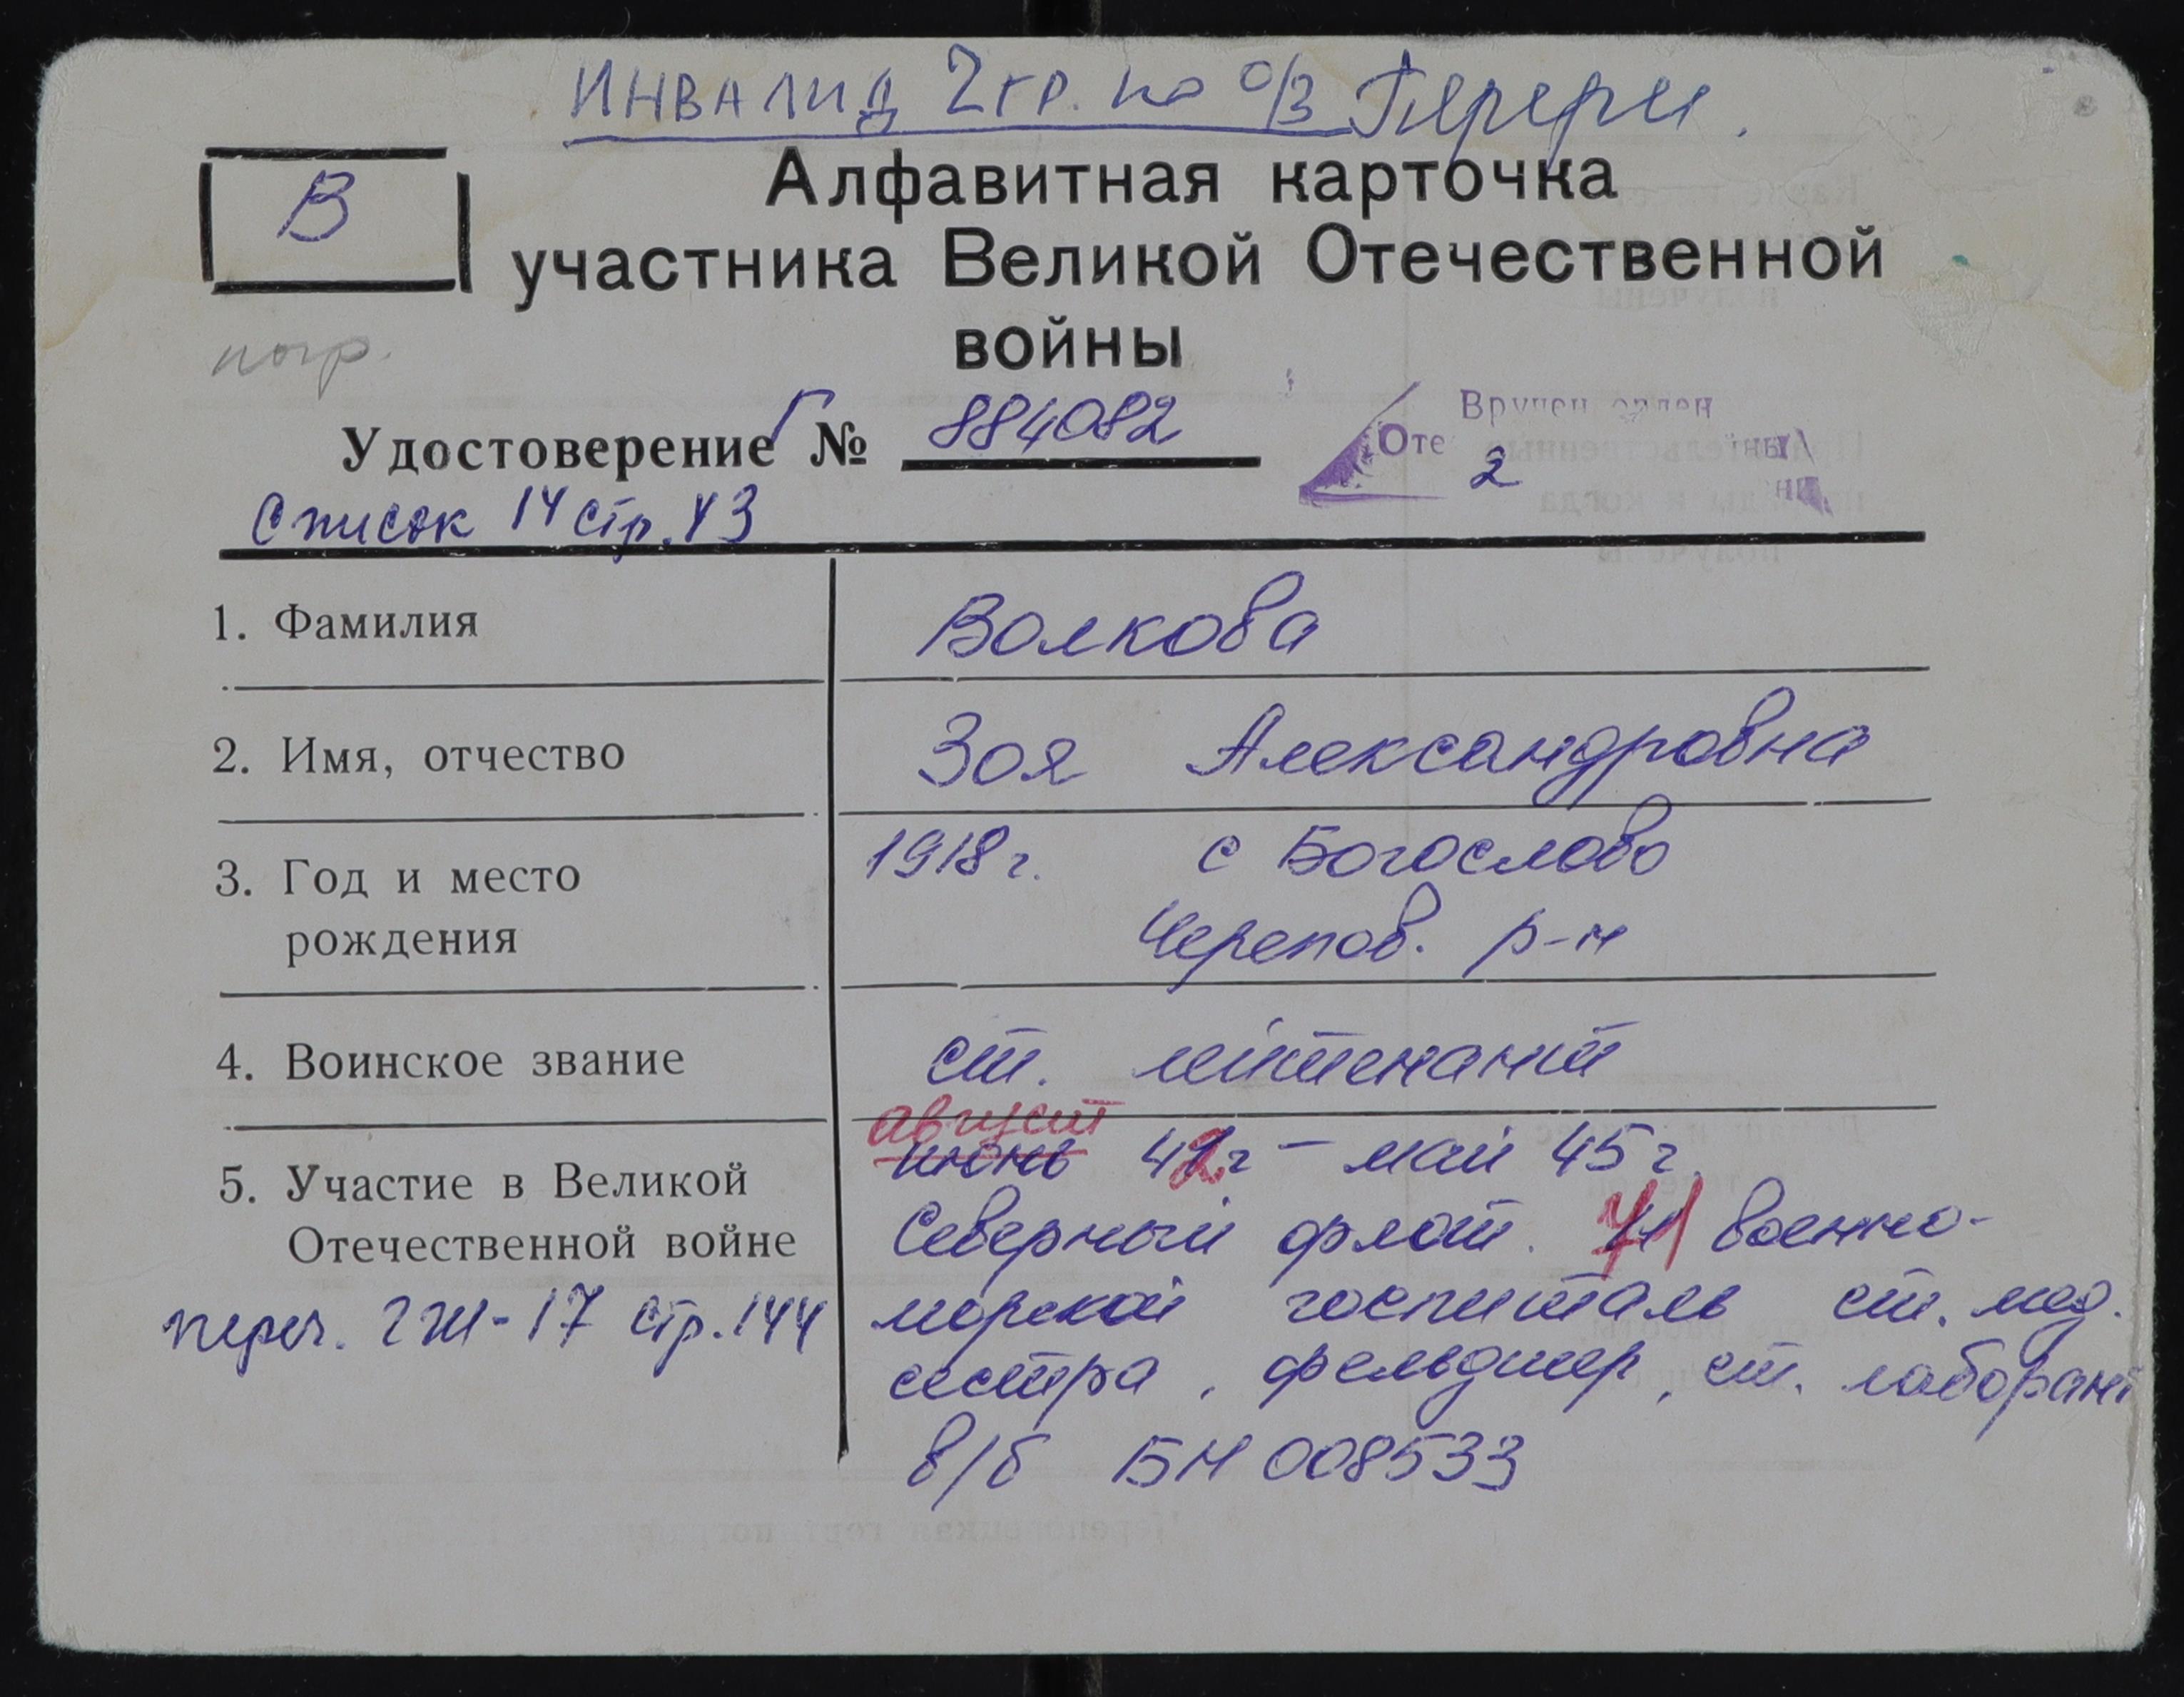 ИНВАЛИД 2 гр. по о/з
В
Алфавитная карточка
участника Великой Отечественной
войны
погр.
Удостоверение Г № 884082
Вручен орден
Оте 2 ны
Список 14 стр. 43
1. Фамилия Волкова
2. Имя, отчество Зоя Александровна
3. Год и место 1918 г. с Богослово
рождения Черепов. р-н
4. Воинское звание ст. лейтенант
август
5. Участие в Великой июнь 42 г – май 45 г.
Отечественной войне Северный флот. 71 военно-
морской госпиталь ст. мед.
переч. 2 ж - 17 стр. 144
сестра, фельдшер, ст. лаборант
в/б БН 008533